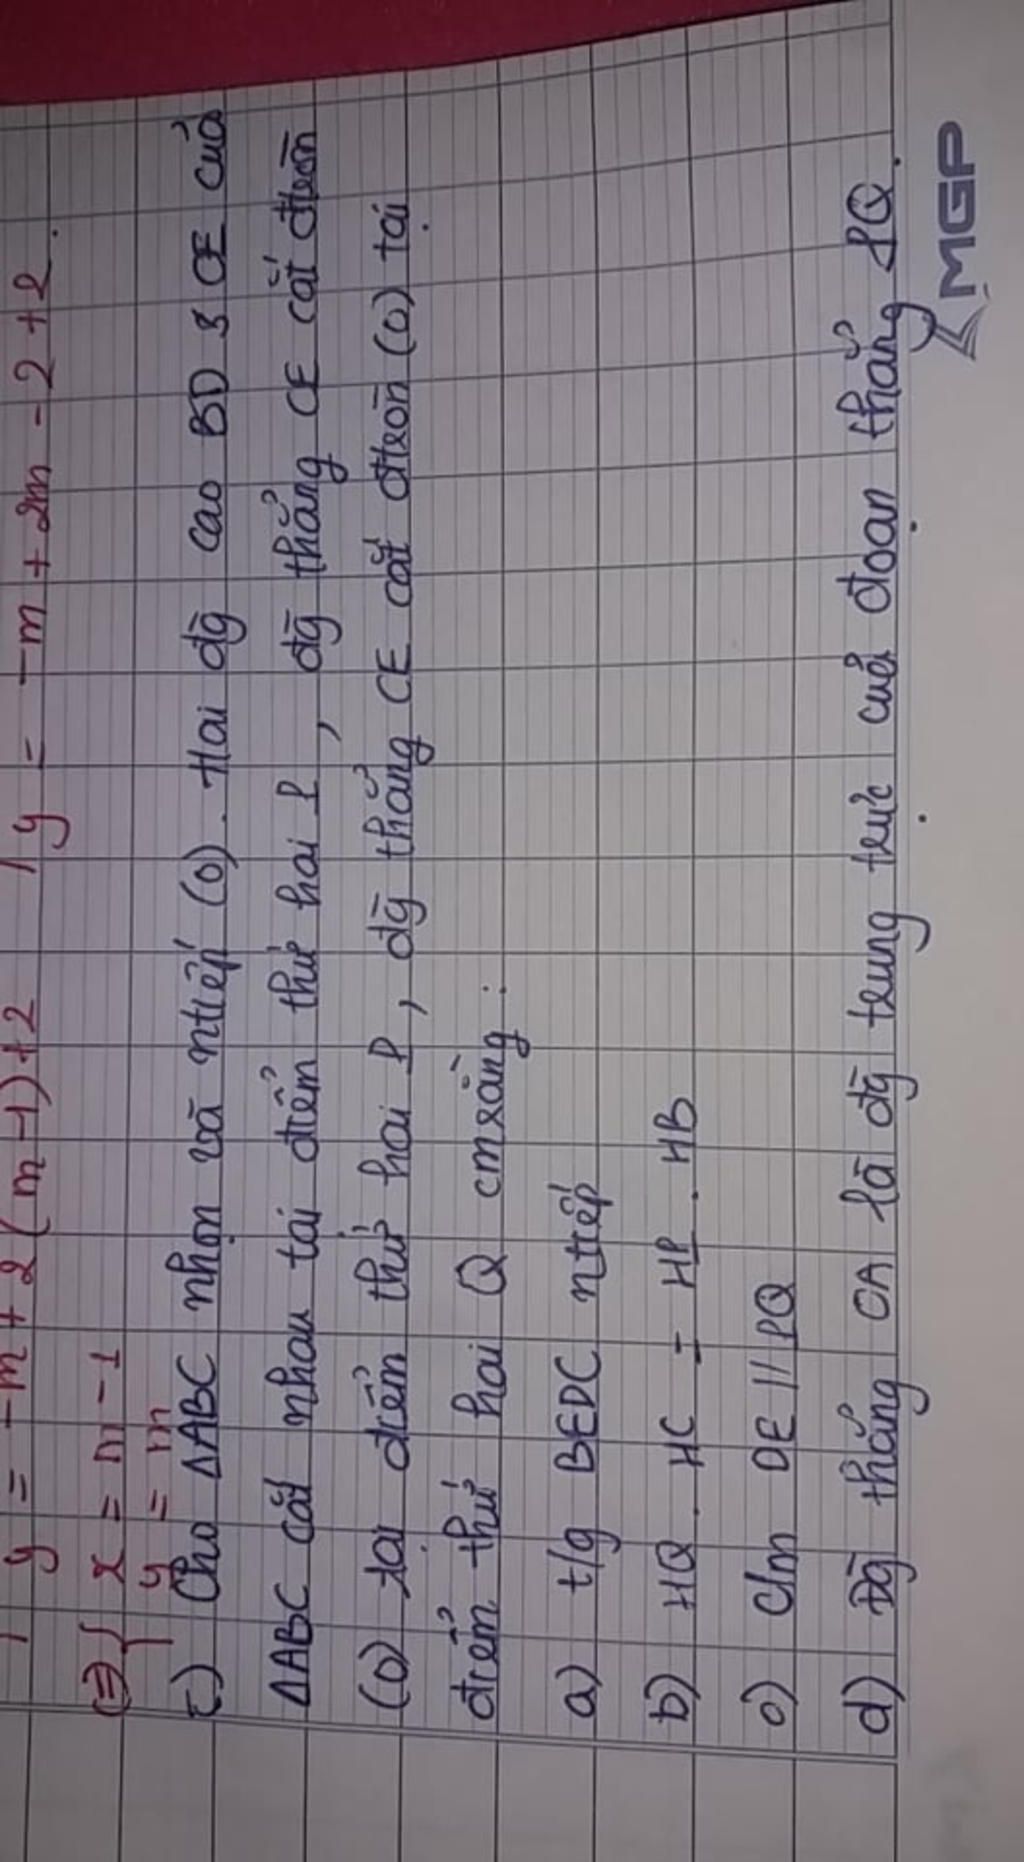 y = -m + 2(m-1)+2 y = -m + 2m - 2 + 2.
(=) { x = m-1
y = m
c) Cho ΔABC nhọn và ntiếp (O). Hai đg cao BD & CE của
ΔABC cắt nhau tại điểm thứ hai P, đg thẳng CE cắt đtròn
(O) tại điểm thứ hai P, đg thẳng CE cắt đtròn (O) tại
điểm thứ hai Q cmrằng:
a) t/g BEDC ntiếp
b) HQ. HC = HP. HB
c) C/m DE // PQ
d) Đg thẳng OA là đg trung trực của đoạn thẳng PQ.
MGP